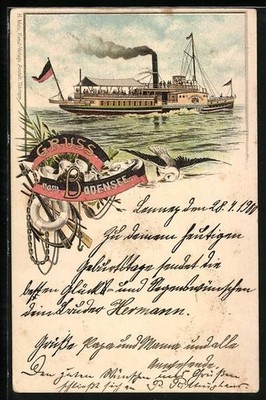 GRUSS
vom BODENSEE
Lenney den 28.4.1900
Zu deinem heutigen
Geburtstage sendet die
besten Glücks- und Segenswünschen
dein Bruder Hermann.
Grüße Papa und Mama und alle
Den guten Wünschen und Grüßen
schließt sich an